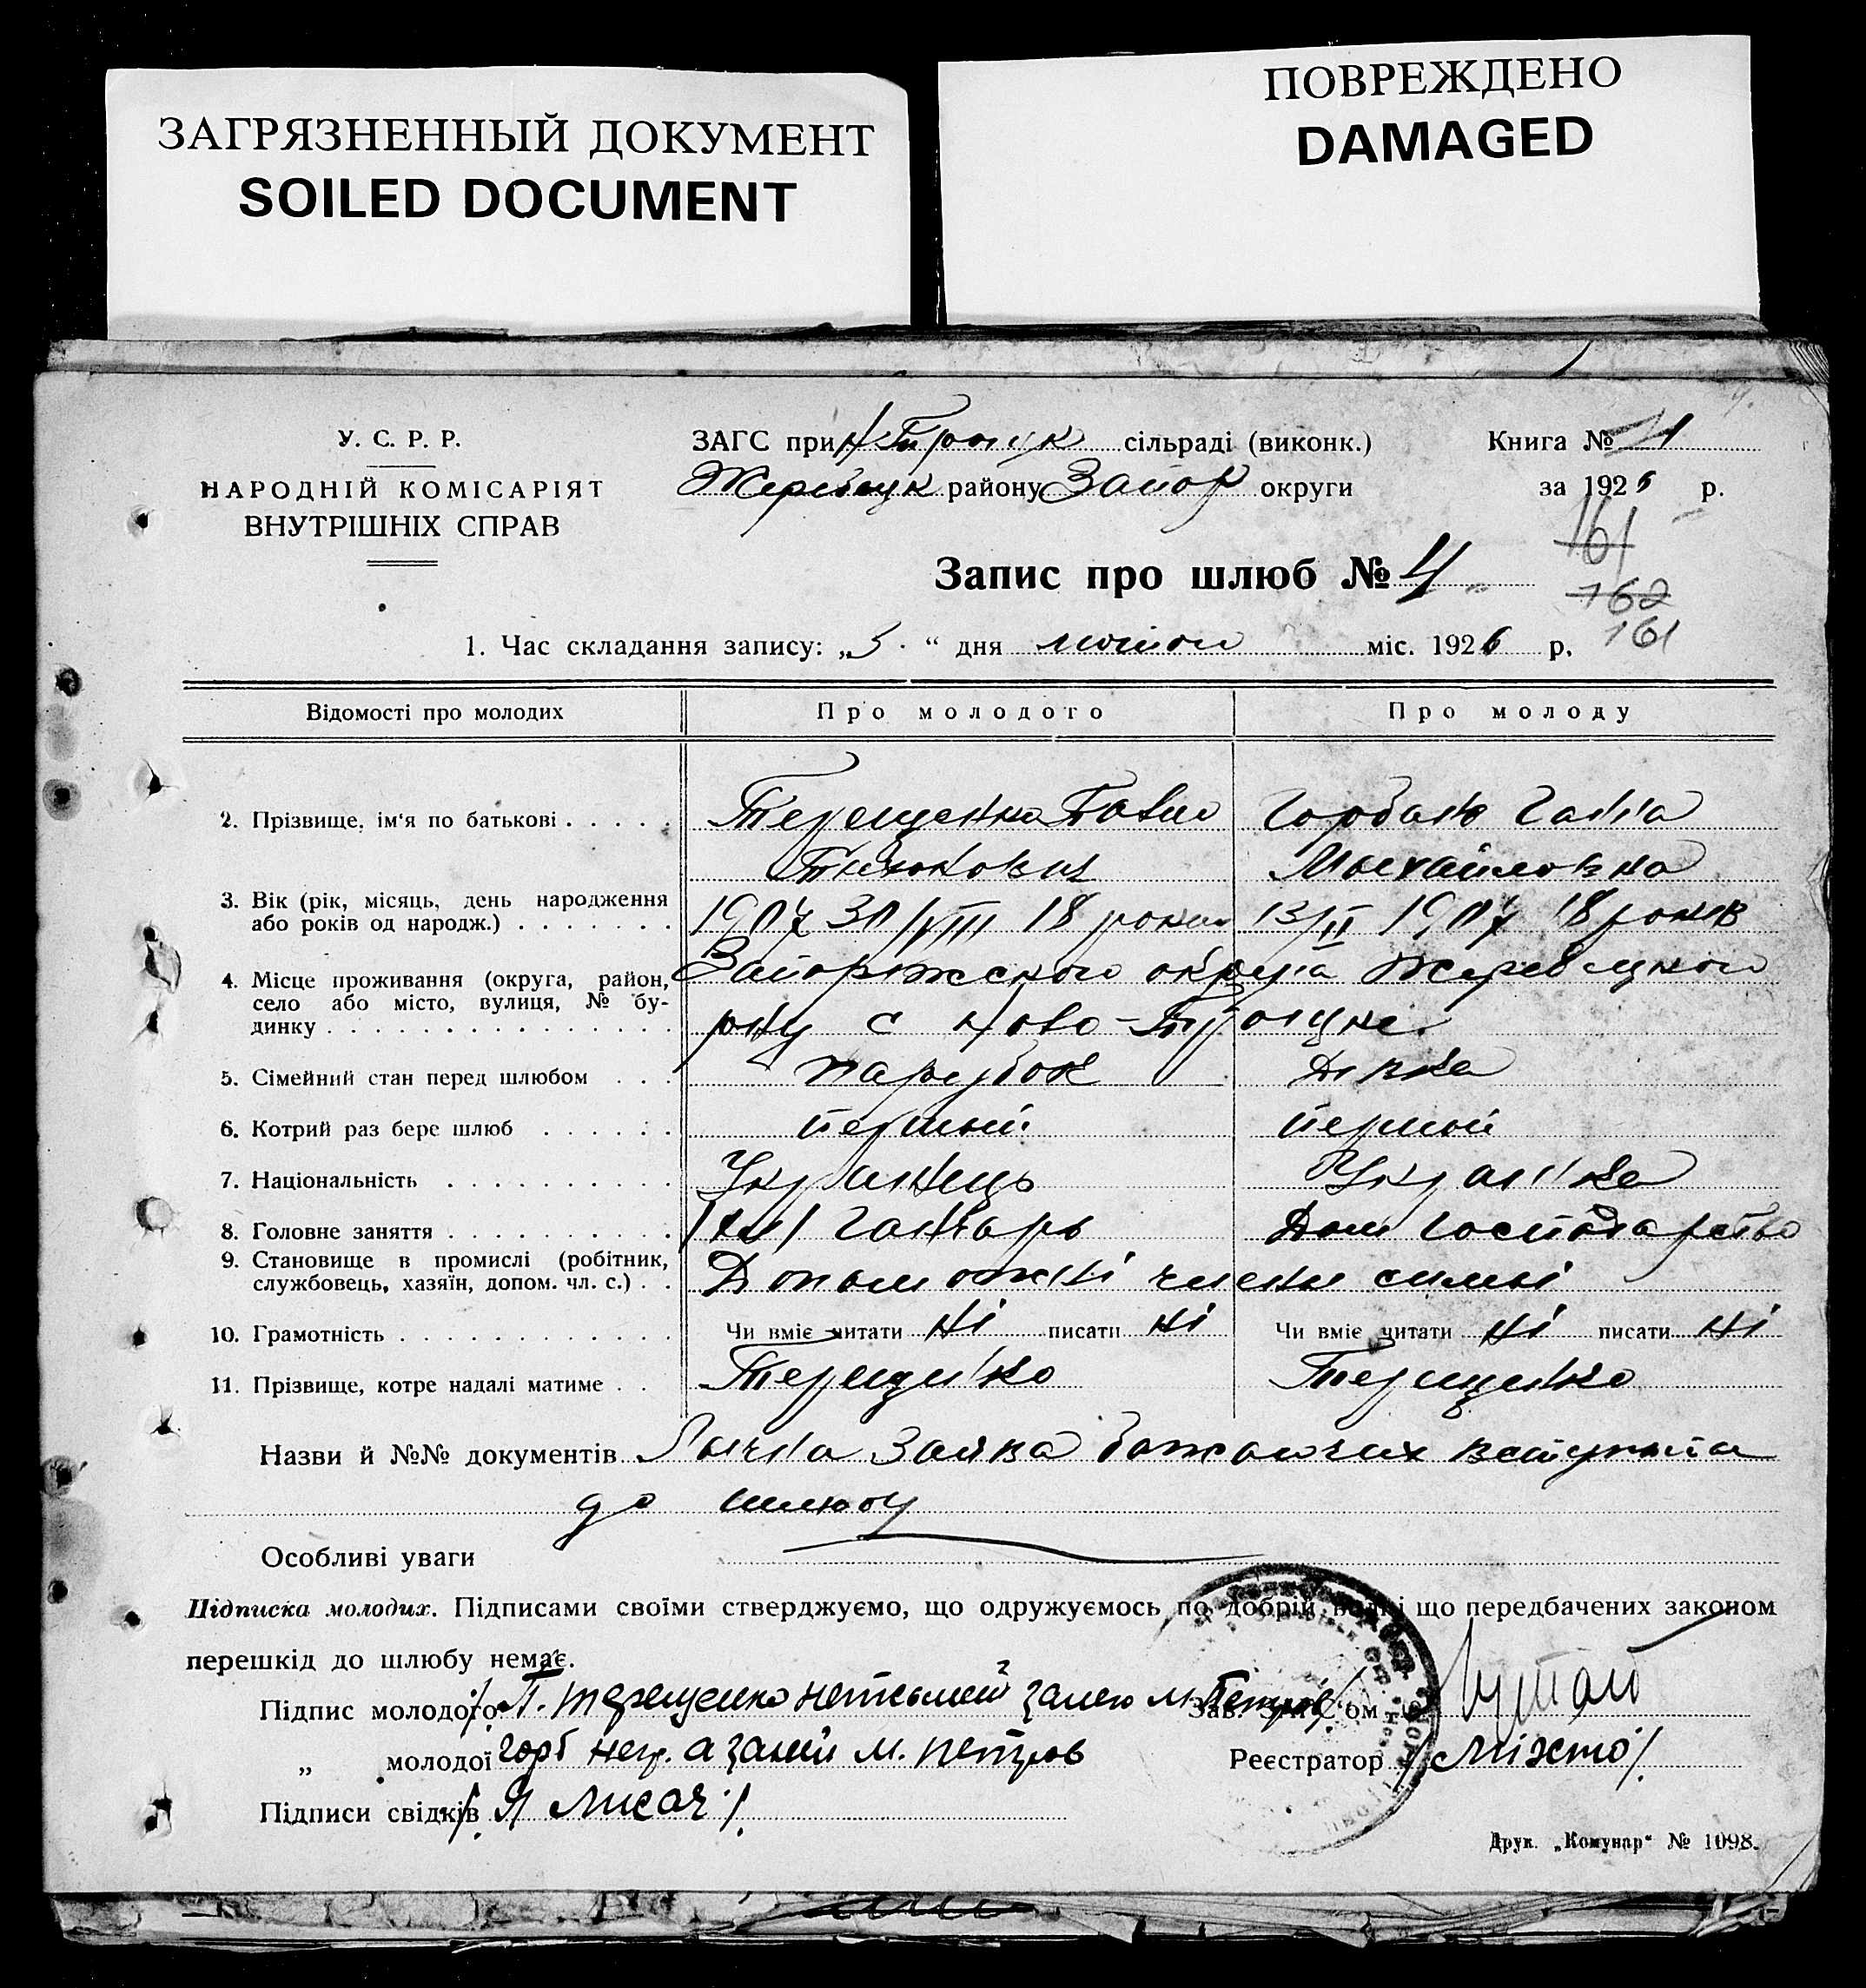 ЗАГРЯЗНЕННЫЙ ДОКУМЕНТ
SOILED DOCUMENT
ПОВРЕЖДЕНО
DAMAGED
У. С. Р. Р.
НАРОДНІЙ КОМІСАРІЯТ
ВНУТРІШНІХ СПРАВ
ЗАГС при Н Троицк сільраді (виконк.)
Жеребецк району Запор округи
Книга № 1
за 1926 р.
161
162
161
Запис про шлюб № 4
1. Час складання запису: „5." дня лютого міс. 1926 р.
Відомості про молодих Про молодого Про молоду
2. Прізвище, ім'я по батькові Терещенко Павло Горбань Ганна
Михайловна
3. Вік (рік, місяць, день народження
або років од народж.) 1907 30/VIII 18 роки 13/II 1907 18 років
4. Місце проживання (округа, район,
село або місто, вулиця, № бу-
динку Запорижского округа Жеребецкого
рну с Ново-Троицке
5. Сімейний стан перед шлюбом парубок Дівка
6. Котрий раз бере шлюб первый первой
7. Національність Українець Українка
8. Головне заняття Дом господарство
9. Становище в промислі (робітник,
службовець, хазяїн, допом. чл. с.) Допоможні члени симьі
10. Грамотність Чи вміє читати ні писати ні Чи вміє читати ні писати ні
11. Прізвище, котре надалі матиме Терещенко Терещенко
Назви й №№ документів Лична заява бажаючих вступити
до шлюбу
Особливі уваги
Підписка молодих. Підписами своїми стверджуємо, що одружуємось по добрій волі і що передбачених законом
перешкід до шлюбу немає.
Підпис молодого П. Терещенко за нею М. Петров Зав. ЗАГС'ом
„ молодої горб нег. а за ней М. Петров Реєстратор
Підписи свідків Я Лисач
Друк. „Комунар" № 1098.